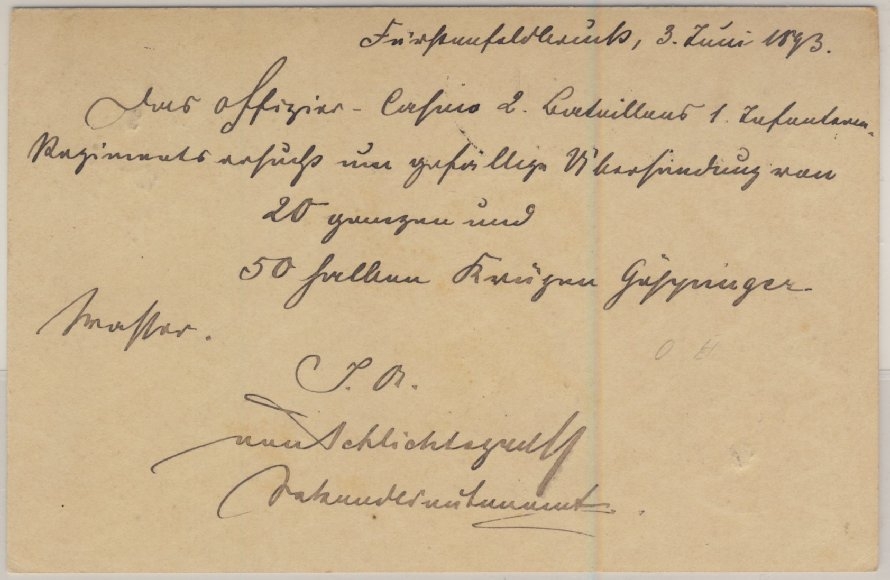 Fürstenfeldbruck, 3. Juni 1893.
Das Offizier-Casino 2. Bataillons 1. Infanterie-
Regiments ersucht um gefällige Übersendung von
20 ganzen und
50 halben Krügen Göppinger-
Wasser.
I. A.
von Schlichtegroll
Sekondlieutenant.